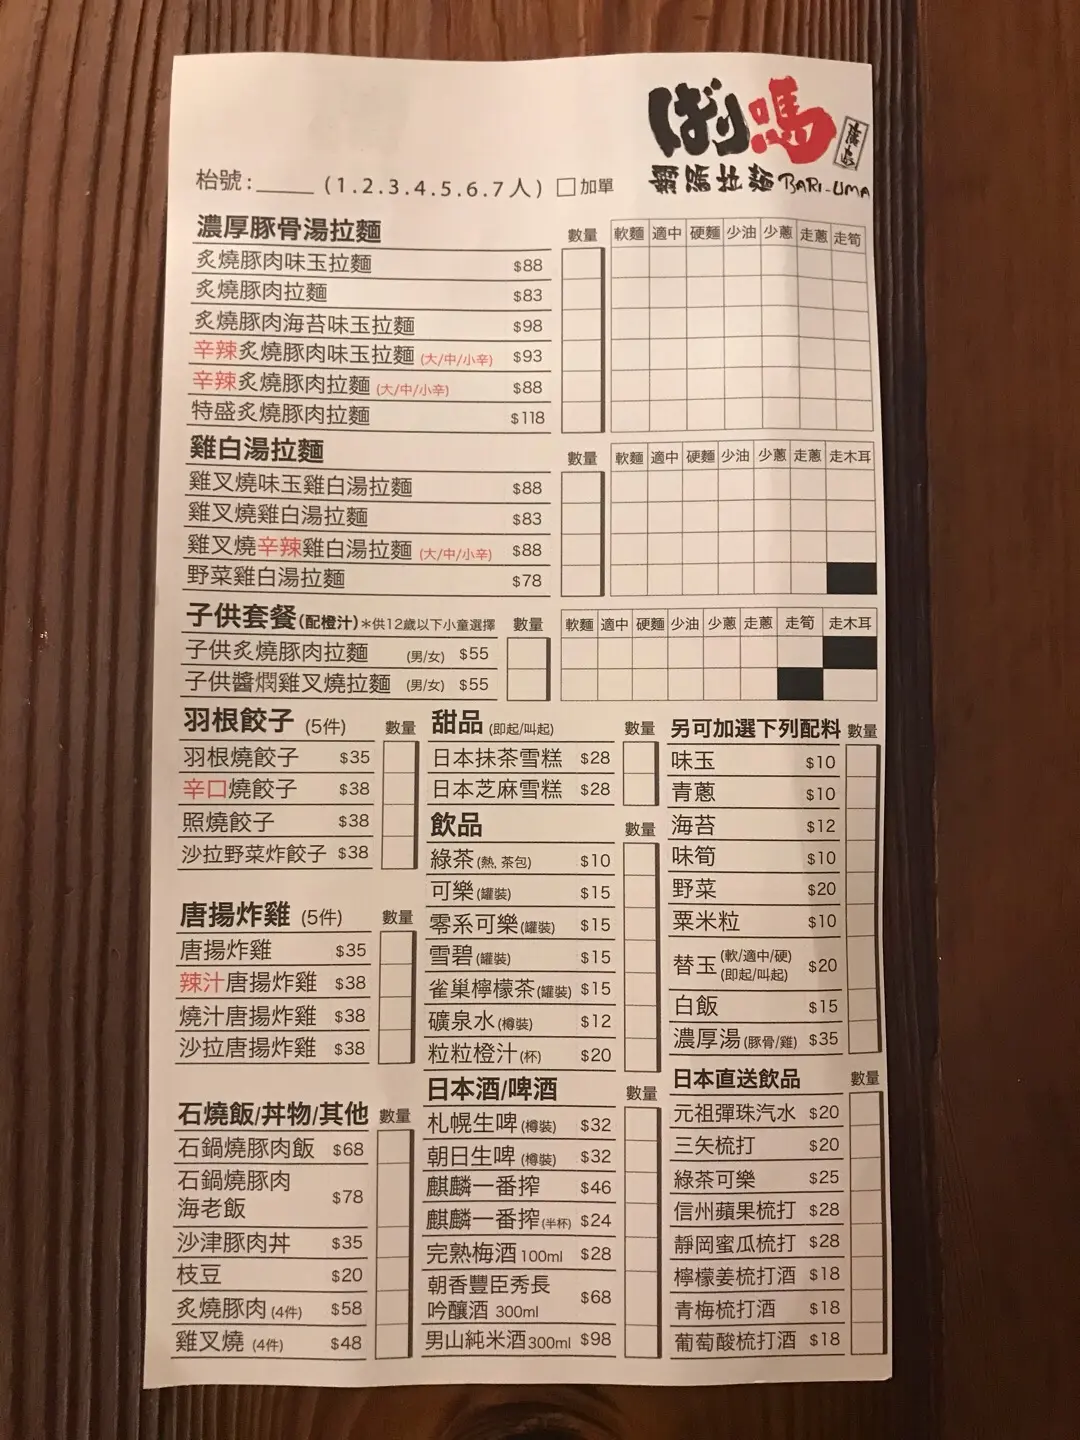 ばり嗎
覇嗎拉麵 BARI-UMA
枱號:_____ (1.2.3.4.5.6.7人) □加單
濃厚豚骨湯拉麵 數量 軟麵 適中 硬麵 少油 少蔥 走蔥 走筍
炙燒豚肉味玉拉麵 $88
炙燒豚肉拉麵 $83
炙燒豚肉海苔味玉拉麵 $98
辛辣炙燒豚肉味玉拉麵 (大/中/小辛) $93
辛辣炙燒豚肉拉麵 (大/中/小辛) $88
特盛炙燒豚肉拉麵 $118
雞白湯拉麵 數量 軟麵 適中 硬麵 少油 少蔥 走蔥 走木耳
雞叉燒味玉雞白湯拉麵 $88
雞叉燒雞白湯拉麵 $83
雞叉燒辛辣雞白湯拉麵 (大/中/小辛) $88
野菜雞白湯拉麵 $78
子供套餐(配橙汁)*供12歲以下小童選擇 數量 軟麵 適中 硬麵 少油 少蔥 走蔥 走筍 走木耳
子供炙燒豚肉拉麵 (男/女) $55
子供醬燜雞叉燒拉麵 (男/女) $55
羽根餃子 (5件) 數量
羽根燒餃子 $35
辛口燒餃子 $38
照燒餃子 $38
沙拉野菜炸餃子 $38
唐揚炸雞 (5件) 數量
唐揚炸雞 $35
辣汁唐揚炸雞 $38
燒汁唐揚炸雞 $38
沙拉唐揚炸雞 $38
石燒飯/丼物/其他 數量
石鍋燒豚肉飯 $68
石鍋燒豚肉
海老飯 $78
沙津豚肉丼 $35
枝豆 $20
炙燒豚肉 (4件) $58
雞叉燒 (4件) $48
甜品 (即起/叫起) 數量
日本抹茶雪糕 $28
日本芝麻雪糕 $28
飲品 數量
綠茶 (熱, 茶包) $10
可樂 (罐裝) $15
零系可樂 (罐裝) $15
雪碧 (罐裝) $15
雀巢檸檬茶 (罐裝) $15
礦泉水 (樽裝) $12
粒粒橙汁 (杯) $20
日本酒/啤酒 數量
札幌生啤 (樽裝) $32
朝日生啤 (樽裝) $32
麒麟一番搾 $46
麒麟一番搾 (半杯) $24
完熟梅酒 100ml $28
朝香豐臣秀長
吟釀酒 300ml $68
男山純米酒 300ml $98
另可加選下列配料 數量
味玉 $10
青蔥 $10
海苔 $12
味筍 $10
野菜 $20
粟米粒 $10
替玉 (軟/適中/硬) (即起/叫起) $20
白飯 $15
濃厚湯 (豚骨/雞) $35
日本直送飲品 數量
元祖彈珠汽水 $20
三矢梳打 $20
綠茶可樂 $25
信州蘋果梳打 $28
靜岡蜜瓜梳打 $28
檸檬姜梳打酒 $18
青梅梳打酒 $18
葡萄酸梳打酒 $18